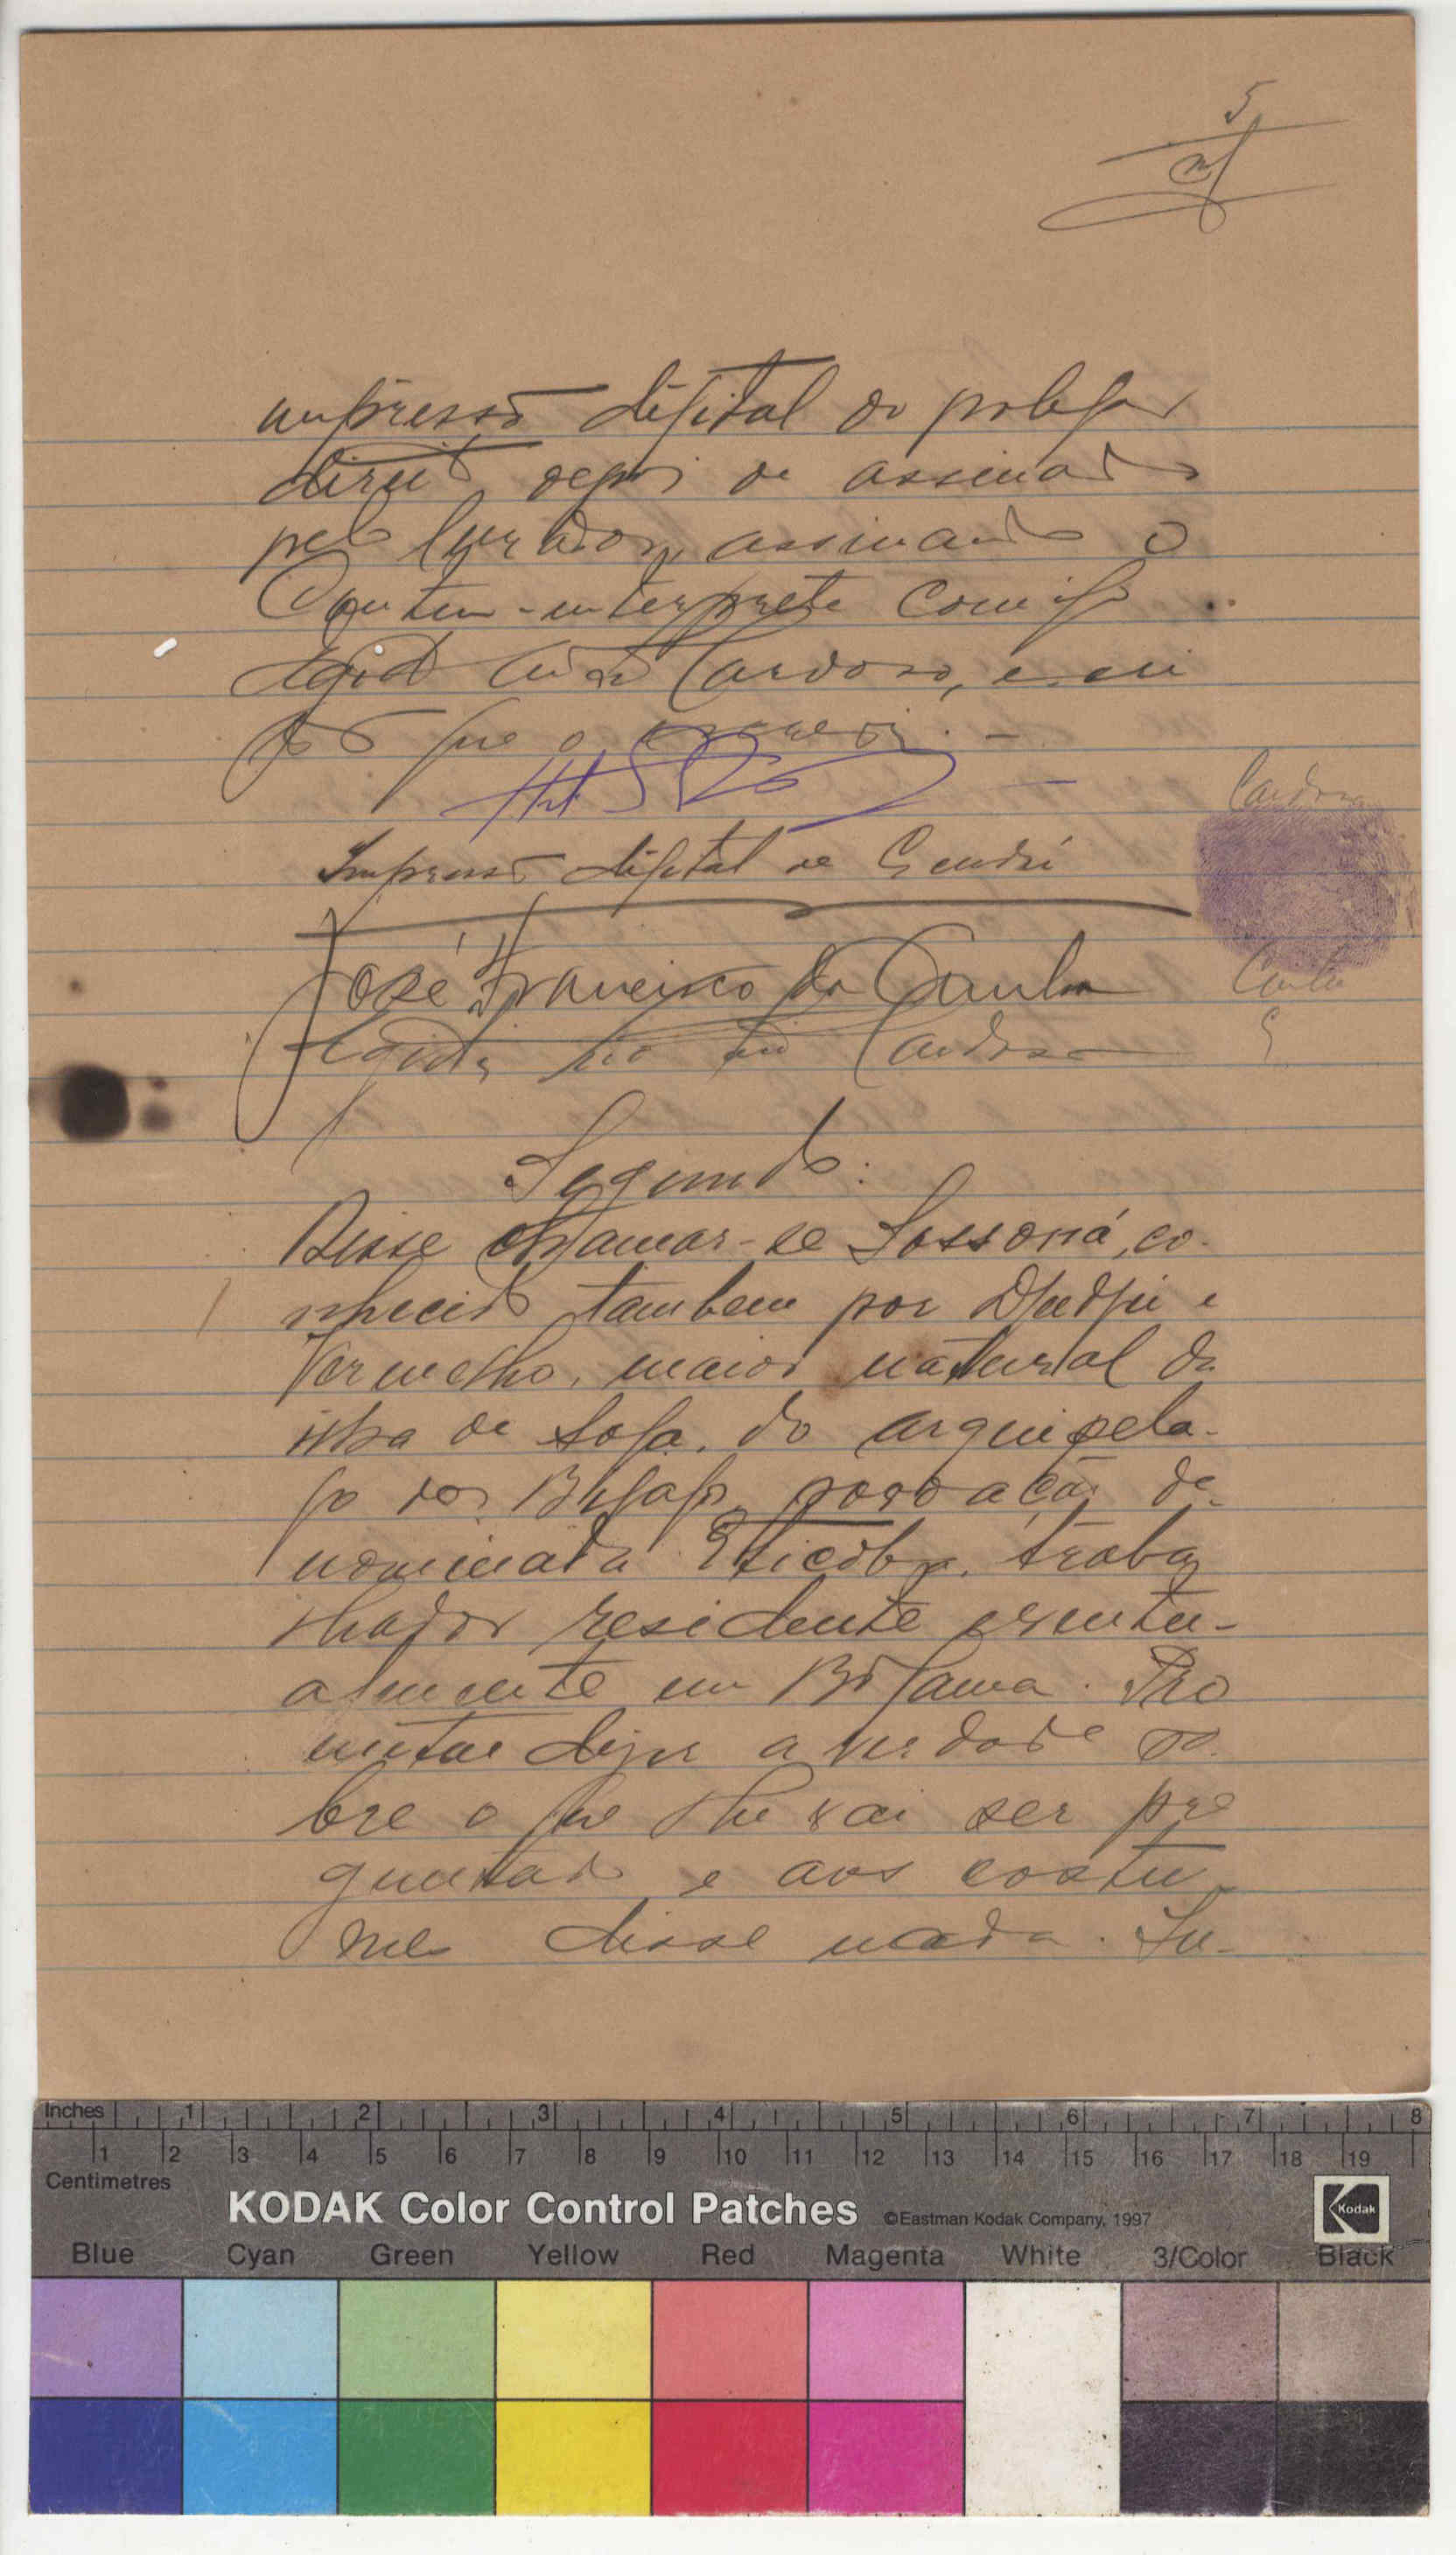 5
impressão digital do polegar
direito depois de assinado
pelo Curador, assinando o
interprete comigo
Cardoso, e eu
que o escrevi. -
Cardoso
Impressão digital de
José Francisco da Cunha
Cunha
Cardoso
Segundo:
Disse chamar-se Sossoná, co-
nhecido tambem por e
Vermelho, maior natural da
ilha de Soga, do arquipela-
go dos Bijagós, povoação de-
nominada traba
lhador residente eventu-
almente em Bolama. Pro
meteu dizer a verdade so-
bre o que lhe vai ser pre
guntado e aos costu-
mes disse nada. Su-
Inches 1 2 3 4 5 6 7 8
1 2 3 4 5 6 7 8 9 10 11 12 13 14 15 16 17 18 19
Centimetres
KODAK Color Control Patches ©Eastman Kodak Company, 1997 Kodak
Blue Cyan Green Yellow Red Magenta White 3/Color Black